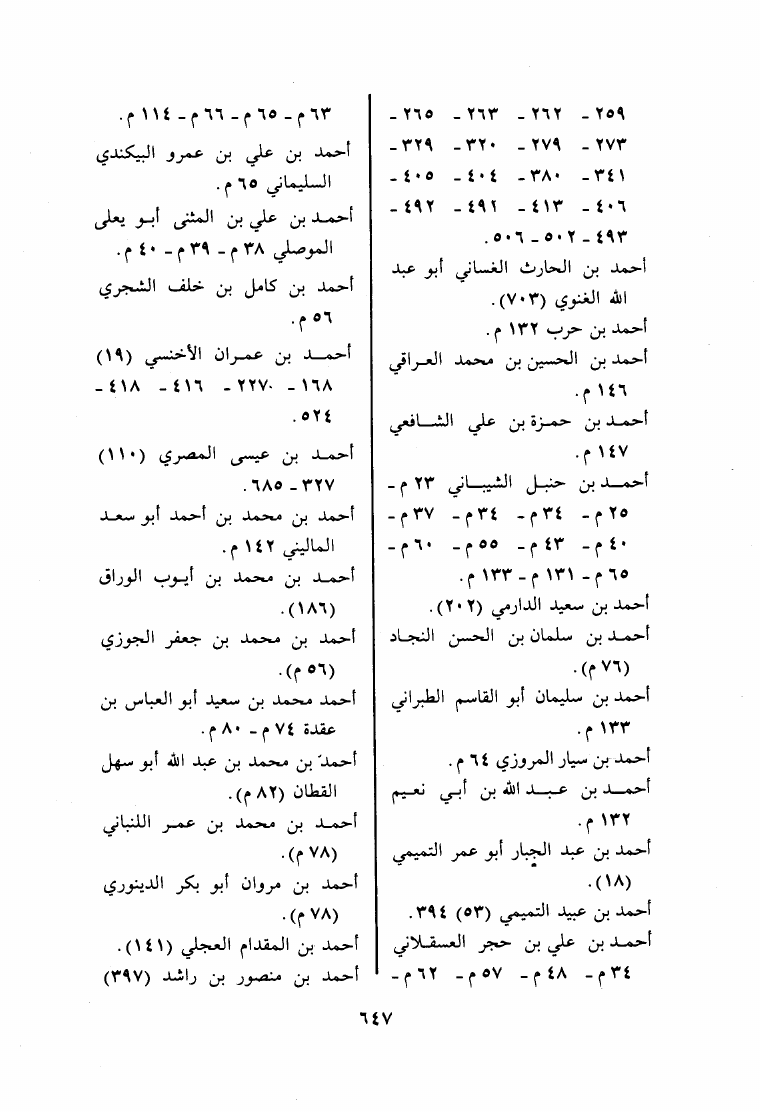 ٢٥٩ - ٢٦٢ - ٢٦٣ - ٢٦٥ -
٢٧٣ - ٢٧٩ - ٣٢٠ - ٣٢٩ -
٣٤١ - ٣٨٠ - ٤٠٤ - ٤٠٥ -
٤٠٦ - ٤١٣ - ٤٩١ - ٤٩٢ -
٤٩٣ - ٥٠٢ - ٥٠٦.
أحمد بن الحارث الغساني أبو عبد
الله الغنوي (٧٠٣).
أحمد بن حرب ١٣٢ م.
أحمد بن الحسين بن محمد العراقي
١٤٦ م.
أحمد بن حمزة بن علي الشافعي
١٤٧ م.
أحمد بن حنبل الشيباني ٢٣ م -
٢٥ م - ٣٤ م - ٣٤ م - ٣٧ م -
٤٠ م - ٤٣ م - ٥٥ م - ٦٠ م -
٦٥ م - ١٣١ م - ١٣٣ م.
أحمد بن سعيد الدارمي (٢٠٢).
أحمد بن سلمان بن الحسن النجاد
(٧٦ م).
أحمد بن سليمان أبو القاسم الطبراني
١٣٣ م.
أحمد بن سيار المروزي ٦٤ م.
أحمد بن عبد الله بن أبي نعيم
١٣٢ م.
أحمد بن عبد الجبار أبو عمر التميمي
(١٨).
أحمد بن عبيد التميمي (٥٣) ٣٩٤.
أحمد بن علي بن حجر العسقلاني
٣٤ م - ٤٨ م - ٥٧ م - ٦٢ م -
٦٣ م - ٦٥ م - ٦٦ م - ١١٤ م.
أحمد بن علي بن عمرو البيكندي
السليماني ٦٥ م.
أحمد بن علي بن المثنى أبو يعلى
الموصلي ٣٨ م - ٣٩ م - ٤٠ م.
أحمد بن كامل بن خلف الشجري
٥٦ م.
أحمد بن عمران الأخنسي (١٩)
١٦٨ - ٢٢٧٠ - ٤١٦ - ٤١٨ -
٥٢٤.
أحمد بن عيسى المصري (١١٠)
٣٢٧ - ٦٨٥.
أحمد بن محمد بن أحمد أبو سعد
الماليني ١٤٢ م.
أحمد بن محمد بن أيوب الوراق
(١٨٦).
أحمد بن محمد بن جعفر الجوزي
(٥٦ م).
أحمد محمد بن سعيد أبو العباس بن
عقدة ٧٤ م - ٨٠ م.
أحمد بن محمد بن عبد الله أبو سهل
القطان (٨٢ م).
أحمد بن محمد بن عمر اللنباني
(٧٨ م).
أحمد بن مروان أبو بكر الدينوري
(٧٨ م).
أحمد بن المقدام العجلي (١٤١).
أحمد بن منصور بن راشد (٣٩٧)
٦٤٧